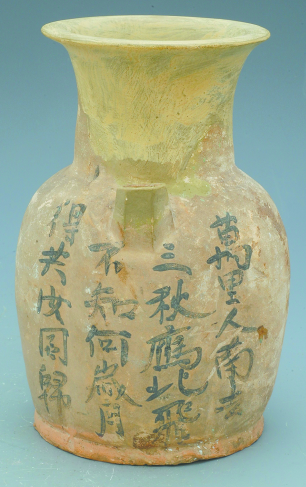 萬里人南去
三秋鴈北飛
不知何歲月
得共汝同歸